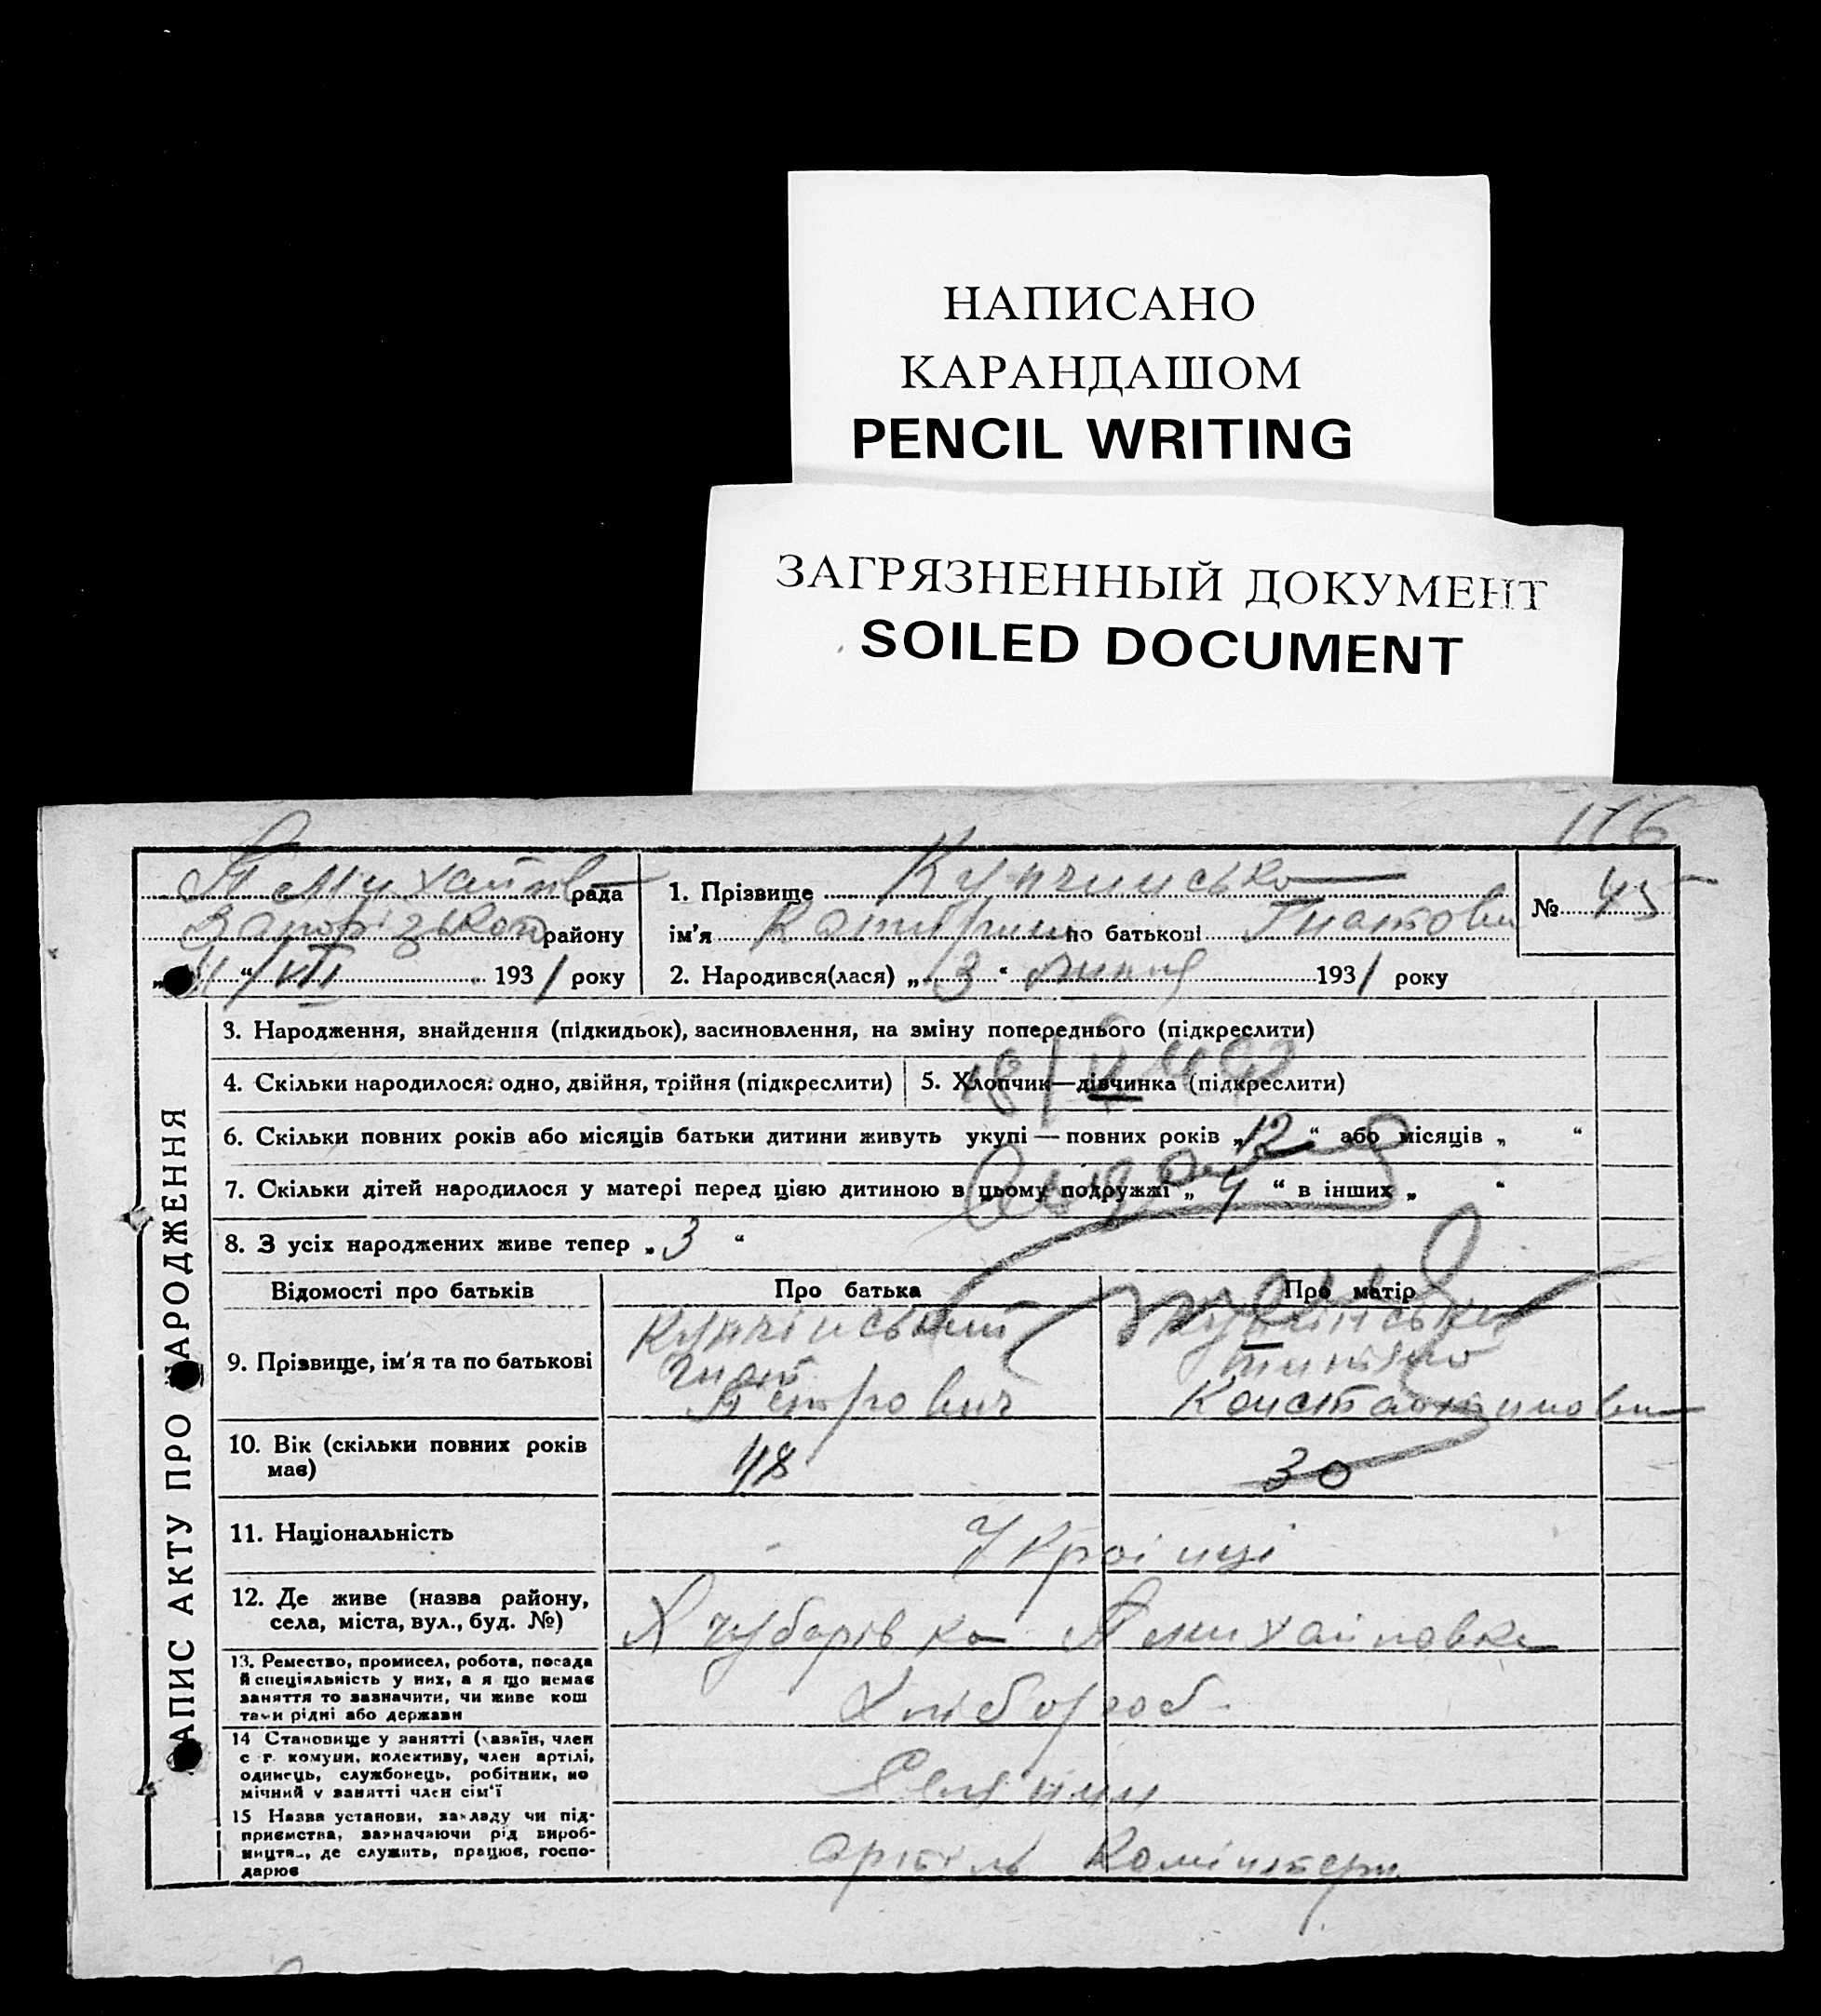 НАПИСАНО
КАРАНДАШОМ
PENCIL WRITING
ЗАГРЯЗНЕННЫЙ ДОКУМЕНТ
SOILED DOCUMENT
рада
Запорізького району
"4" VII 1931 року
1. Прізвище Купчинська
ім'я Катерина по батькові Гнатовна
2. Народився(лася) „3“ липня 1931 року
№ 45
ЗАПИС АКТУ ПРО НАРОДЖЕННЯ
3. Народження, знайдення (підкидьок), засиновлення, на зміну попереднього (підкреслити)
4. Скільки народилося: одно, двійня, трійня (підкреслити)
5. Хлопчик—дівчинка (підкреслити)
6. Скільки повних років або місяців батьки дитини живуть укупі — повних років „12“ або місяців „ “
7. Скільки дітей народилося у матері перед цією дитиною в цьому подружжі „4“ в інших „ “
8. З усіх народжених живе тепер „3“
Відомості про батьків
Про батька
Про матір
9. Прізвище, ім'я та по батькові
Купчінський
Гнат
Петрович
Купчінська
Константиновна
10. Вік (скільки повних років має)
48
30
11. Національність
Українці
12. Де живе (назва району,
села, міста, вул., буд. №)
Х Чубарівка П Михайловка
13. Ремество, промисел, робота, посада
й спеціяльність у них, а я що немає
заняття то зазначити, чи живе кош
тами рідні або держави
Хлібороб
14 Становище у занятті (хазяїн, член
с г. комуни, колективу, член артілі,
одинець, службовець, робітник, по
мічний у занятті член сім'ї
15 Назва установи, закладу чи під-
приємства, зазначаючи рід вироб-
ництв, де служить, працює, госпо-
дарює
артіль Комінтерн